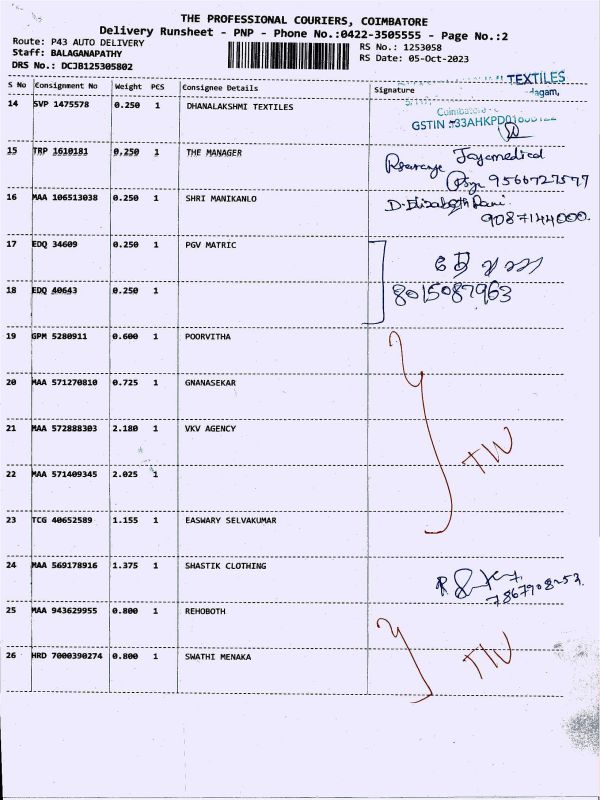 THE PROFESSIONAL COURIERS, COIMBATORE
Delivery Runsheet - PNP - Phone No.:0422-3505555 - Page No.:2
Route: P43 AUTO DELIVERY
Staff: BALAGANAPATHY
DRS No.: DCJB125305802
RS No.: 1253058
RS Date: 05-Oct-2023
S No Consignment No Weight PCS Consignee Details Signature
TEXTILES
14 SVP 1475578 0.250 1 DHANALAKSHMI TEXTILES
Coimbatore
GSTIN :33AHKPD01
15 TRP 1610181 0.250 1 THE MANAGER
Jayamedical
9566727577
16 MAA 106513038 0.250 1 SHRI MANIKANLO D. Elizabeth Rani
9087144000.
17 EDQ 34609 0.250 1 PGV MATRIC
18 EDQ 40643 0.250 1 8015087963
19 GPM 5280911 0.600 1 POORVITHA
20 MAA 571270810 0.725 1 GNANASEKAR
21 MAA 572888303 2.180 1 VKV AGENCY
TW
22 MAA 571409345 2.025 1
23 TCG 40652589 1.155 1 EASWARY SELVAKUMAR
24 MAA 569178916 1.375 1 SHASTIK CLOTHING
25 MAA 943629955 0.800 1 REHOBOTH
26 HRD 7000390274 0.800 1 SWATHI MENAKA TW